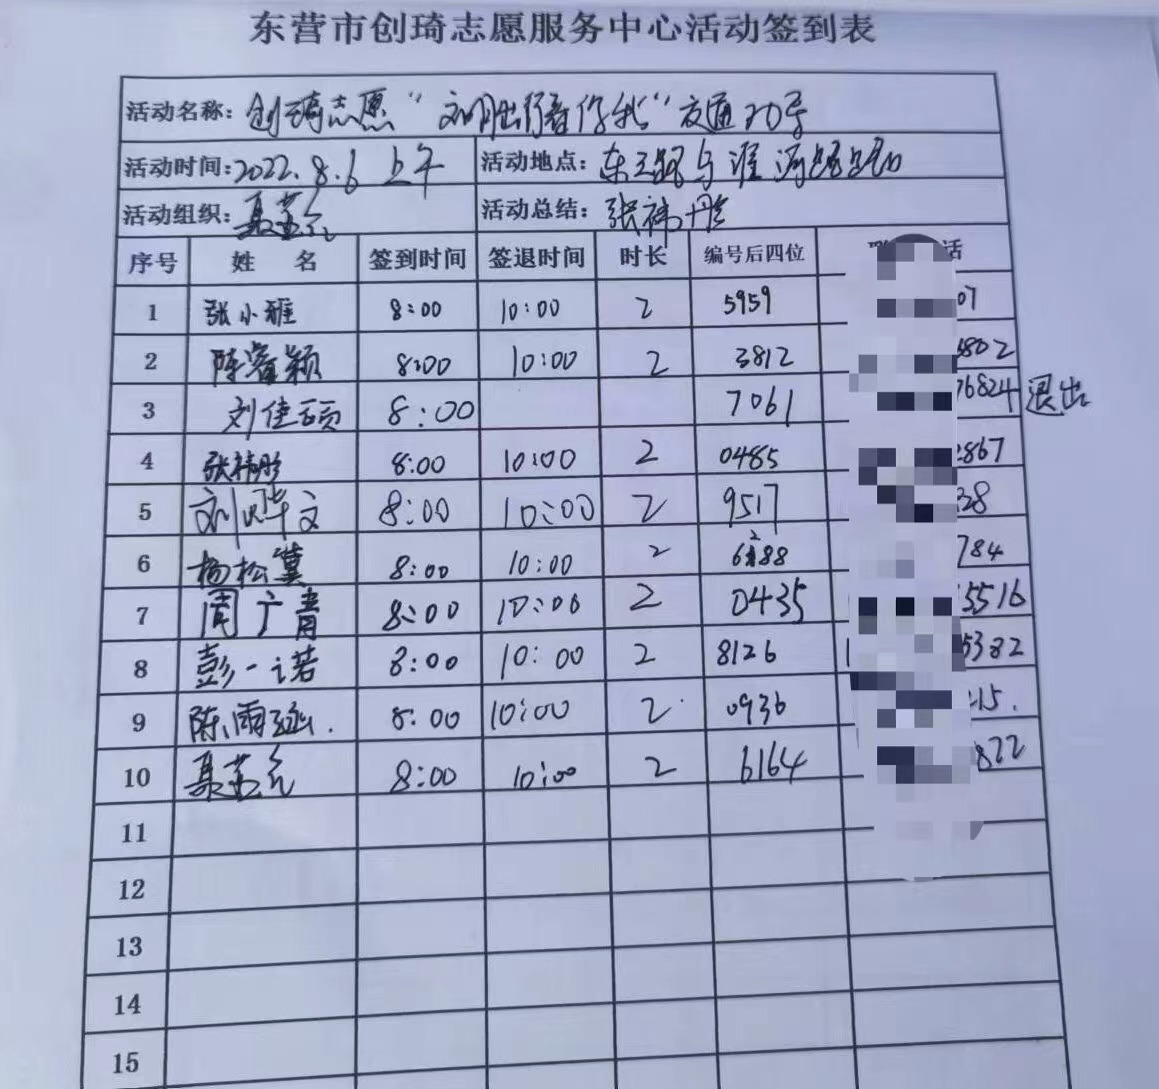 东营市创琦志愿服务中心活动签到表
活动名称：创琦志愿“文明出行看你我”交通引导
活动时间：2022.8.6 上午 活动地点：东三路与淮河路路口
活动组织： 活动总结：张祎彤
序号 姓 名 签到时间 签退时间 时长 编号后四位 话
1 张小雅 8:00 10:00 2 5959 07
2 陈睿颖 8:00 10:00 2 3812 802
3 刘佳硕 8:00 7061 76824 退出
4 张祎彤 8:00 10:00 2 0485 2867
5 刘晔文 8:00 10:00 2 9517 38
6 杨松冀 8:00 10:00 2 6288 784
7 周广青 8:00 10:00 2 0435 5516
8 彭一诺 8:00 10:00 2 8126 5382
9 陈雨涵. 8:00 10:00 2 0936 15.
10 8:00 10:00 2 6164 822
11
12
13
14
15